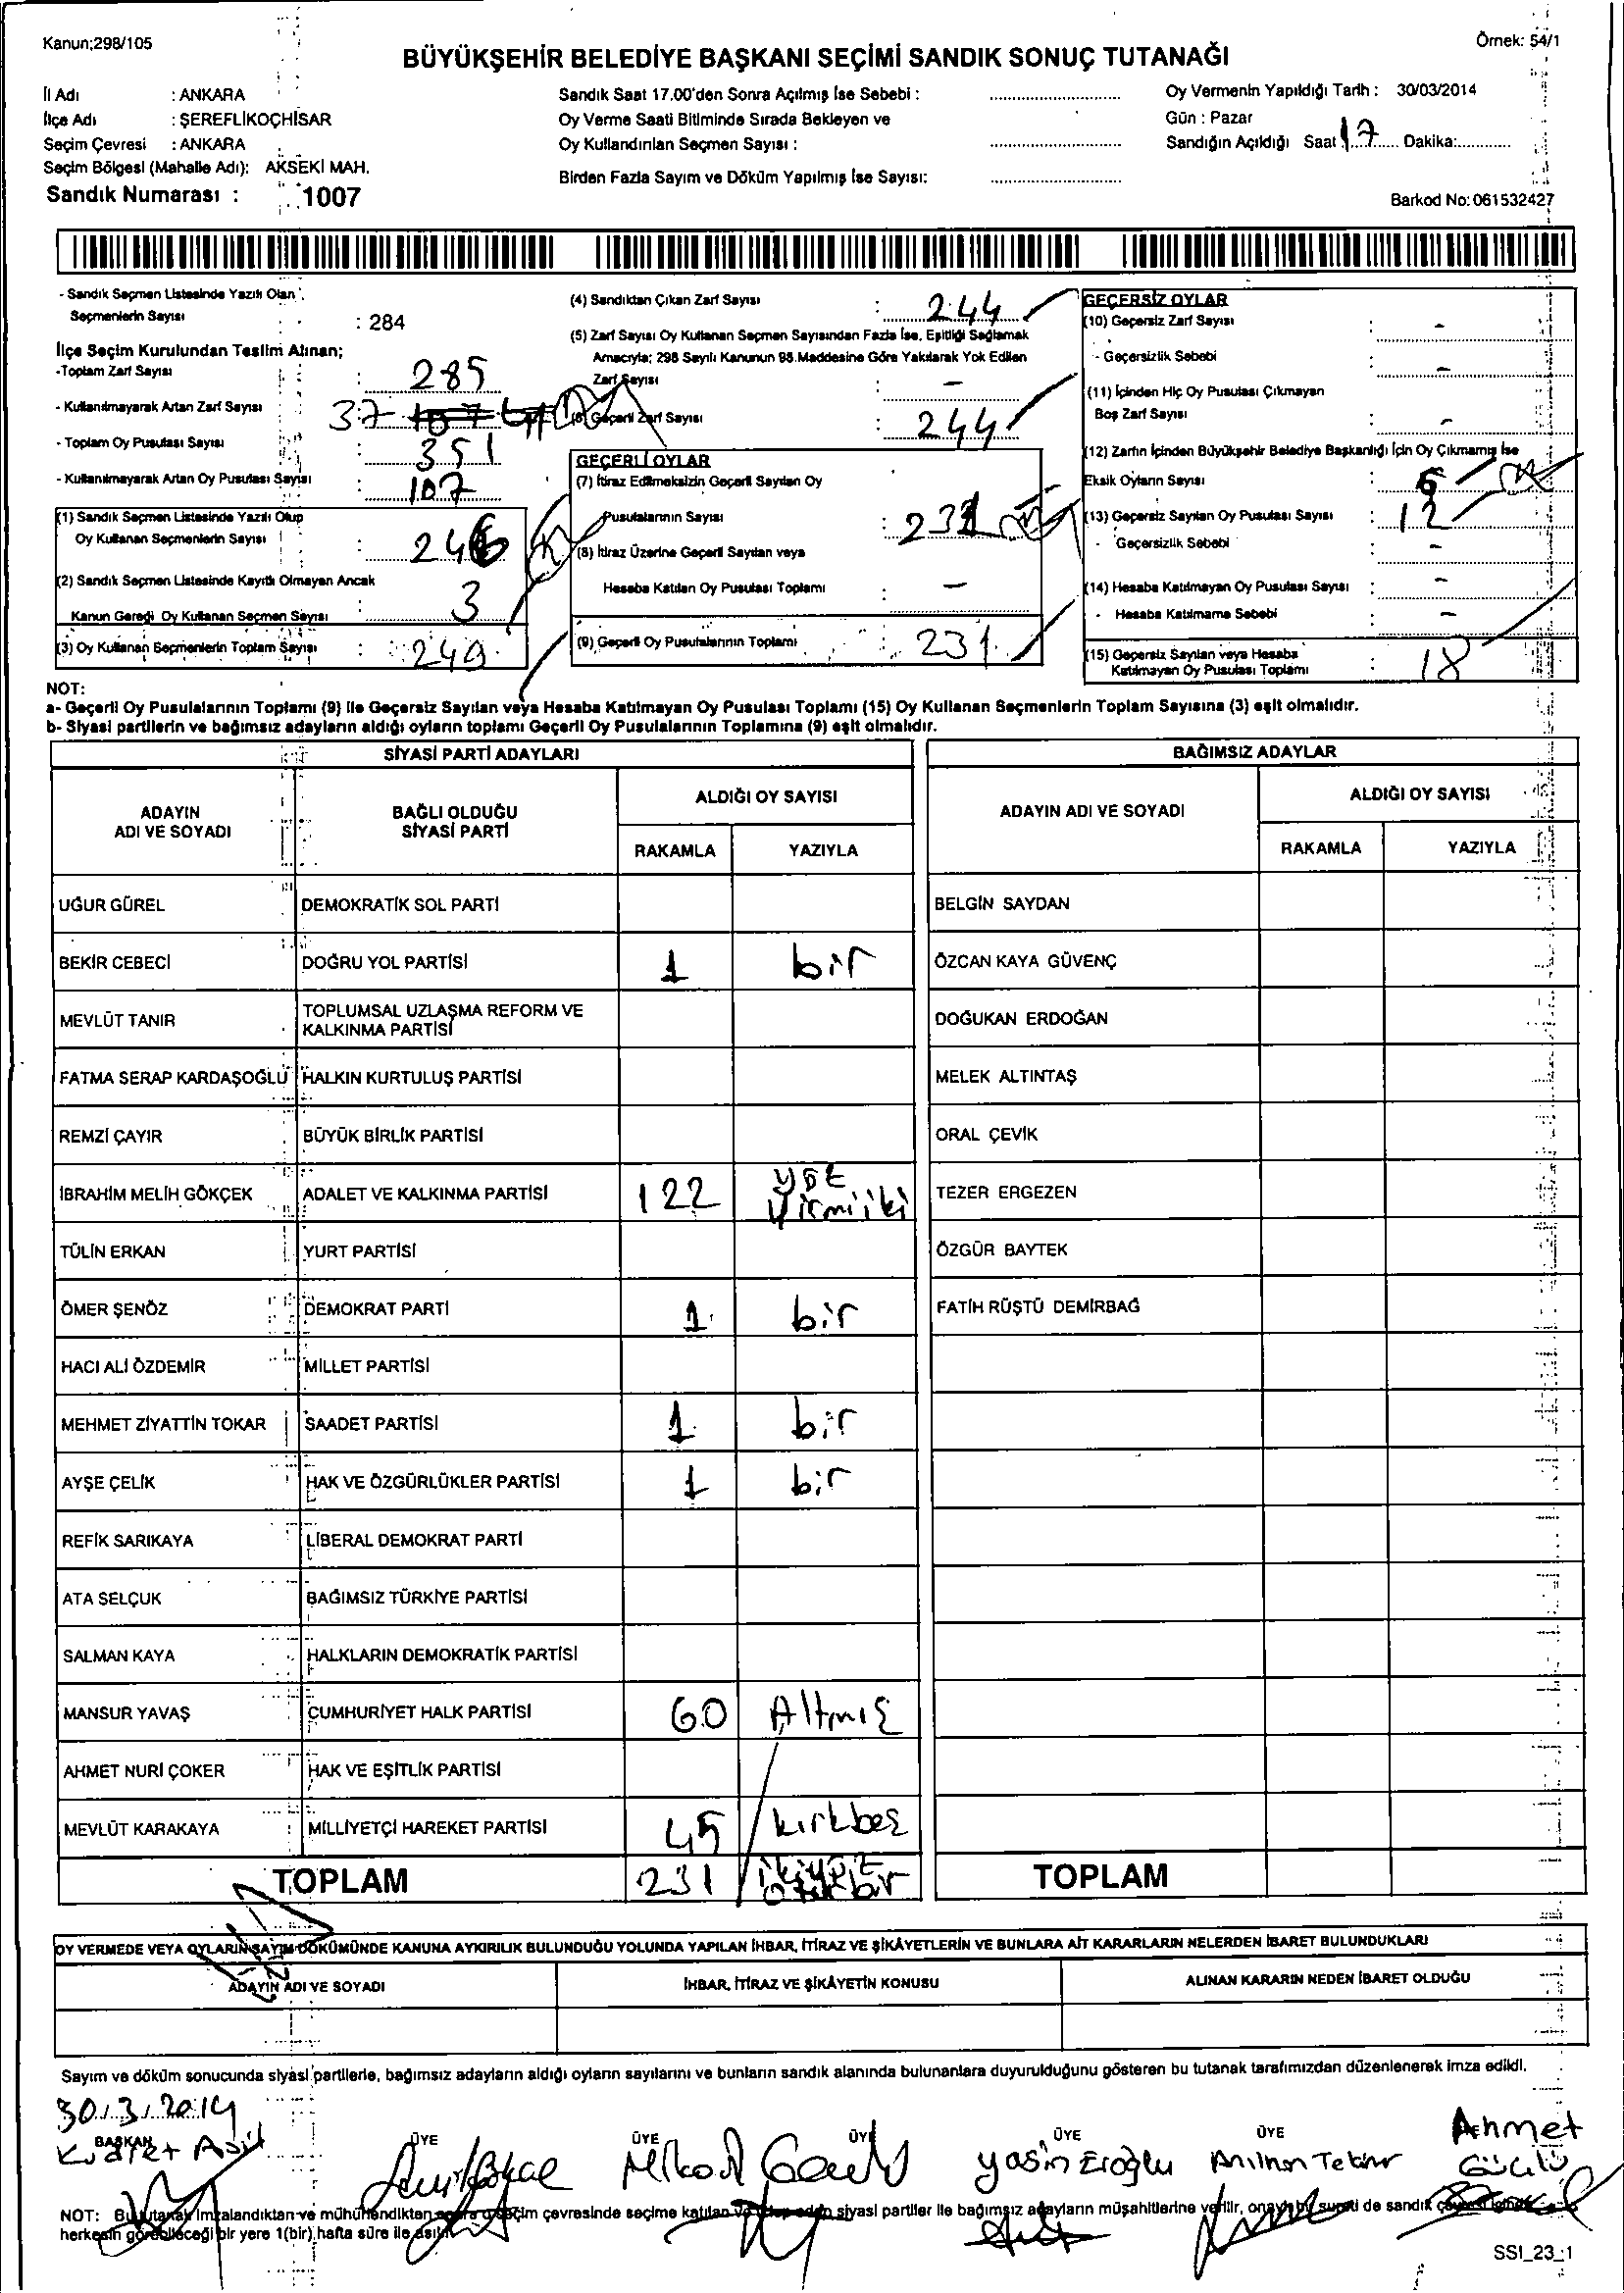 Kanun;298/105
Örnek: 54/1
BÜYÜKŞEHİR BELEDİYE BAŞKANI SEÇİMİ SANDIK SONUÇ TUTANAĞI
İl Adı : ANKARA
İlçe Adı : ŞEREFLİKOÇHİSAR
Seçim Çevresi : ANKARA
Seçim Bölgesi (Mahalle Adı): AKSEKİ MAH.
Sandık Numarası : 1007
Sandık Saat 17.00'den Sonra Açılmış İse Sebebi :
Oy Verme Saati Bitiminde Sırada Bekleyen ve
Oy Kullandırılan Seçmen Sayısı :
Birden Fazla Sayım ve Döküm Yapılmış İse Sayısı:
Oy Vermenin Yapıldığı Tarih : 30/03/2014
Gün : Pazar
Sandığın Açıldığı Saat 17 Dakika:
Barkod No: 061532427
- Sandık Seçmen Listesinde Yazılı Olan
Seçmenlerin Sayısı : 284
İlçe Seçim Kurulundan Teslim Alınan;
-Toplam Zarf Sayısı : 285
- Kullanılmayarak Artan Zarf Sayısı : 37
- Toplam Oy Pusulası Sayısı : 351
- Kullanılmayarak Artan Oy Pusulası Sayısı : 107
(1) Sandık Seçmen Listesinde Yazılı Olup
Oy Kullanan Seçmenlerin Sayısı : 246
(2) Sandık Seçmen Listesinde Kayıtlı Olmayan Ancak
Kanun Gereği Oy Kullanan Seçmen Sayısı : 3
(3) Oy Kullanan Seçmenlerin Toplam Sayısı : 249
(4) Sandıktan Çıkan Zarf Sayısı : 244
(5) Zarf Sayısı Oy Kullanan Seçmen Sayısından Fazla İse, Eşitliği Sağlamak
Amacıyla; 298 Sayılı Kanunun 98.Maddesine Göre Yakılarak Yok Edilen
Zarf Sayısı : -
(6) Geçerli Zarf Sayısı : 244
GEÇERLİ OYLAR
(7) İtiraz Edilmeksizin Geçerli Sayılan Oy
Pusulalarının Sayısı : 231
(8) İtiraz Üzerine Geçerli Sayılan veya
Hesaba Katılan Oy Pusulası Toplamı : -
(9) Geçerli Oy Pusulalarının Toplamı : 231
GEÇERSİZ OYLAR
(10) Geçersiz Zarf Sayısı : -
- Geçersizlik Sebebi : -
(11) İçinden Hiç Oy Pusulası Çıkmayan
Boş Zarf Sayısı : -
(12) Zarfın İçinden Büyükşehir Belediye Başkanlığı İçin Oy Çıkmamış İse
Eksik Oyların Sayısı : 6
(13) Geçersiz Sayılan Oy Pusulası Sayısı : 12
- Geçersizlik Sebebi : -
(14) Hesaba Katılmayan Oy Pusulası Sayısı : -
- Hesaba Katılmama Sebebi : -
(15) Geçersiz Sayılan veya Hesaba
Katılmayan Oy Pusulası Toplamı : 18
NOT:
a- Geçerli Oy Pusulalarının Toplamı (9) ile Geçersiz Sayılan veya Hesaba Katılmayan Oy Pusulası Toplamı (15) Oy Kullanan Seçmenlerin Toplam Sayısına (3) eşit olmalıdır.
b- Siyasi partilerin ve bağımsız adayların aldığı oyların toplamı Geçerli Oy Pusulalarının Toplamına (9) eşit olmalıdır.
SİYASİ PARTİ ADAYLARI
ADAYIN ADI VE SOYADI
BAĞLI OLDUĞU SİYASİ PARTİ
ALDIĞI OY SAYISI
RAKAMLA YAZIYLA
UĞUR GÜREL DEMOKRATİK SOL PARTİ
BEKİR CEBECİ DOĞRU YOL PARTİSİ 1 bir
MEVLÜT TANIR TOPLUMSAL UZLAŞMA REFORM VE
KALKINMA PARTİSİ
FATMA SERAP KARDAŞOĞLU HALKIN KURTULUŞ PARTİSİ
REMZİ ÇAYIR BÜYÜK BİRLİK PARTİSİ
İBRAHİM MELİH GÖKÇEK ADALET VE KALKINMA PARTİSİ 122 yüz
yirmiiki
TÜLİN ERKAN YURT PARTİSİ
ÖMER ŞENÖZ DEMOKRAT PARTİ 1 bir
HACI ALİ ÖZDEMİR MİLLET PARTİSİ
MEHMET ZİYATTİN TOKAR SAADET PARTİSİ 1 bir
AYŞE ÇELİK HAK VE ÖZGÜRLÜKLER PARTİSİ 1 bir
REFİK SARIKAYA LİBERAL DEMOKRAT PARTİ
ATA SELÇUK BAĞIMSIZ TÜRKİYE PARTİSİ
SALMAN KAYA HALKLARIN DEMOKRATİK PARTİSİ
MANSUR YAVAŞ CUMHURİYET HALK PARTİSİ 60 Altmış
AHMET NURİ ÇOKER HAK VE EŞİTLİK PARTİSİ
MEVLÜT KARAKAYA MİLLİYETÇİ HAREKET PARTİSİ 45 kırkbeş
TOPLAM 231 ikiyüz
otuzbir
BAĞIMSIZ ADAYLAR
ADAYIN ADI VE SOYADI
ALDIĞI OY SAYISI
RAKAMLA YAZIYLA
BELGİN SAYDAN
ÖZCAN KAYA GÜVENÇ
DOĞUKAN ERDOĞAN
MELEK ALTINTAŞ
ORAL ÇEVİK
TEZER ERGEZEN
ÖZGÜR BAYTEK
FATİH RÜŞTÜ DEMİRBAĞ
TOPLAM
OY VERMEDE VEYA OYLARIN SAYIM DÖKÜMÜNDE KANUNA AYKIRILIK BULUNDUĞU YOLUNDA YAPILAN İHBAR, İTİRAZ VE ŞİKÂYETLERİN VE BUNLARA AİT KARARLARIN NELERDEN İBARET BULUNDUKLARI
ADAYIN ADI VE SOYADI
İHBAR, İTİRAZ VE ŞİKÂYETİN KONUSU
ALINAN KARARIN NEDEN İBARET OLDUĞU
Sayım ve döküm sonucunda siyasi partilerle, bağımsız adayların aldığı oyların sayılarını ve bunların sandık alanında bulunanlara duyurulduğunu gösteren bu tutanak tarafımızdan düzenlenerek imza edildi.
30/3/2014
BAŞKAN ÜYE ÜYE ÜYE ÜYE ÜYE
Yasin Eroğlu
Ahmet
Güçlü
NOT: Bu tutanak imzalandıktan ve mühürlendikten sonra o seçim çevresinde seçime katılan ve talep eden siyasi partiler ile bağımsız adayların müşahitlerine verilir, onaylı bir sureti de sandık çevresi içinde
herkesin görebileceği bir yere 1(bir) hafta süre ile asılır.
SSI_23_1